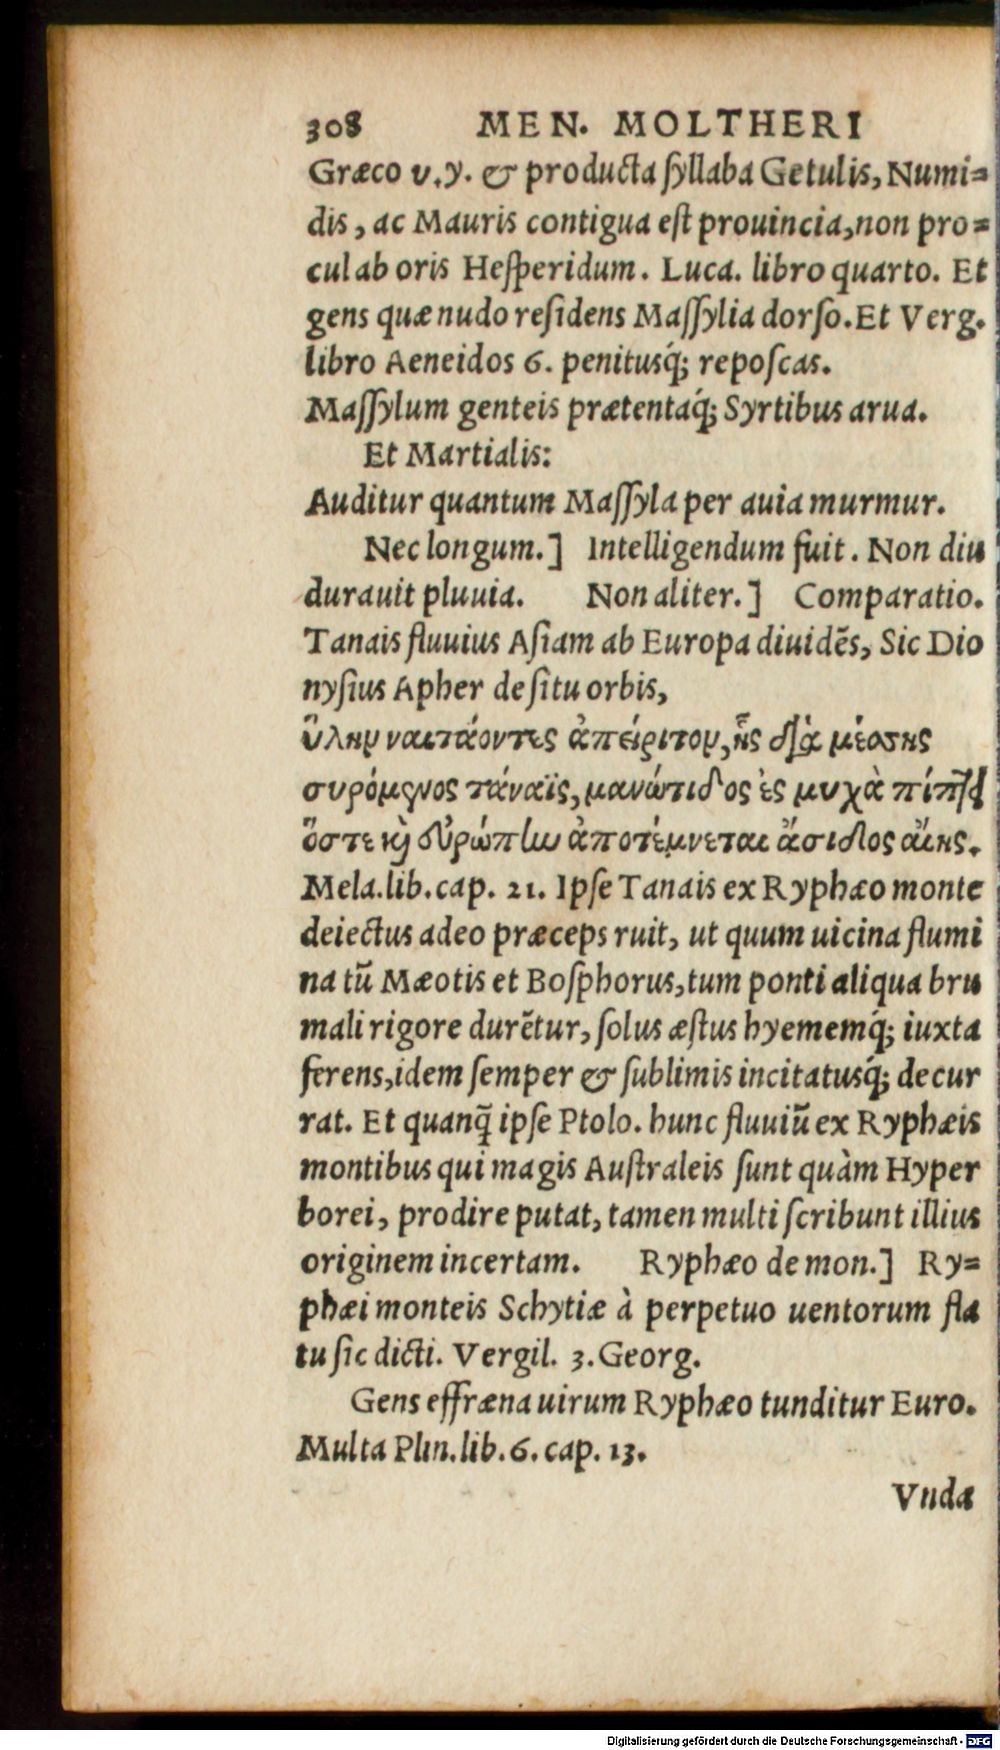 308 MEN. MOLTHERI
Græco υ.y. & producta ſyllaba Getulis, Numi=
dis, ac Mauris contigua eſt prouincia,non pro=
cul ab oris Heſperidum. Luca. libro quarto. Et
gens quæ nudo reſidens Maſſylia dorſo.Et Verg.
libro Aeneidos 6. penitusq́; repoſcas.
Maſſylum genteis prætentaq́; Syrtibus arua.
Et Martialis:
Auditur quantum Maſſyla per auia murmur.
Nec longum.] Intelligendum fuit. Non diu
durauit pluuia. Non aliter.] Comparatio.
Tanais fluuius Aſiam ab Europa diuidẽs, Sic Dio
nyſius Apher de ſitu orbis,
ὕλην ναιετάοντες ἀπείριτον,ἧς διὰ μέσσης
συρόμενος τάναϊς,μαιώτιδος ἐς μυχὰ πίπτει
ὅστε καὶ εὐρώπην ἀποτέμνεται ἄσιδος αἴης.
Mela.lib.cap. 21. Ipſe Tanais ex Ryphæo monte
deiectus adeo præceps ruit, ut quum uicina flumi
na tũ Mæotis et Boſphorus,tum ponti aliqua bru
mali rigore durẽtur, ſolus æſtus hyememq́; iuxta
ferens,idem ſemper & ſublimis incitatusq́; decur
rat. Et quanq̃ ipſe Ptolo. hunc fluuiũ ex Ryphæis
montibus qui magis Auſtraleis ſunt quàm Hyper
borei, prodire putat, tamen multi ſcribunt illius
originem incertam. Ryphæo de mon.] Ry=
phæi monteis Schytiæ à perpetuo uentorum fla
tu ſic dicti. Vergil. 3. Georg.
Gens effræna uirum Ryphæo tunditur Euro.
Multa Plin.lib.6.cap.13.
Vnda
Digitalisierung gefördert durch die Deutsche Forschungsgemeinschaft - DFG